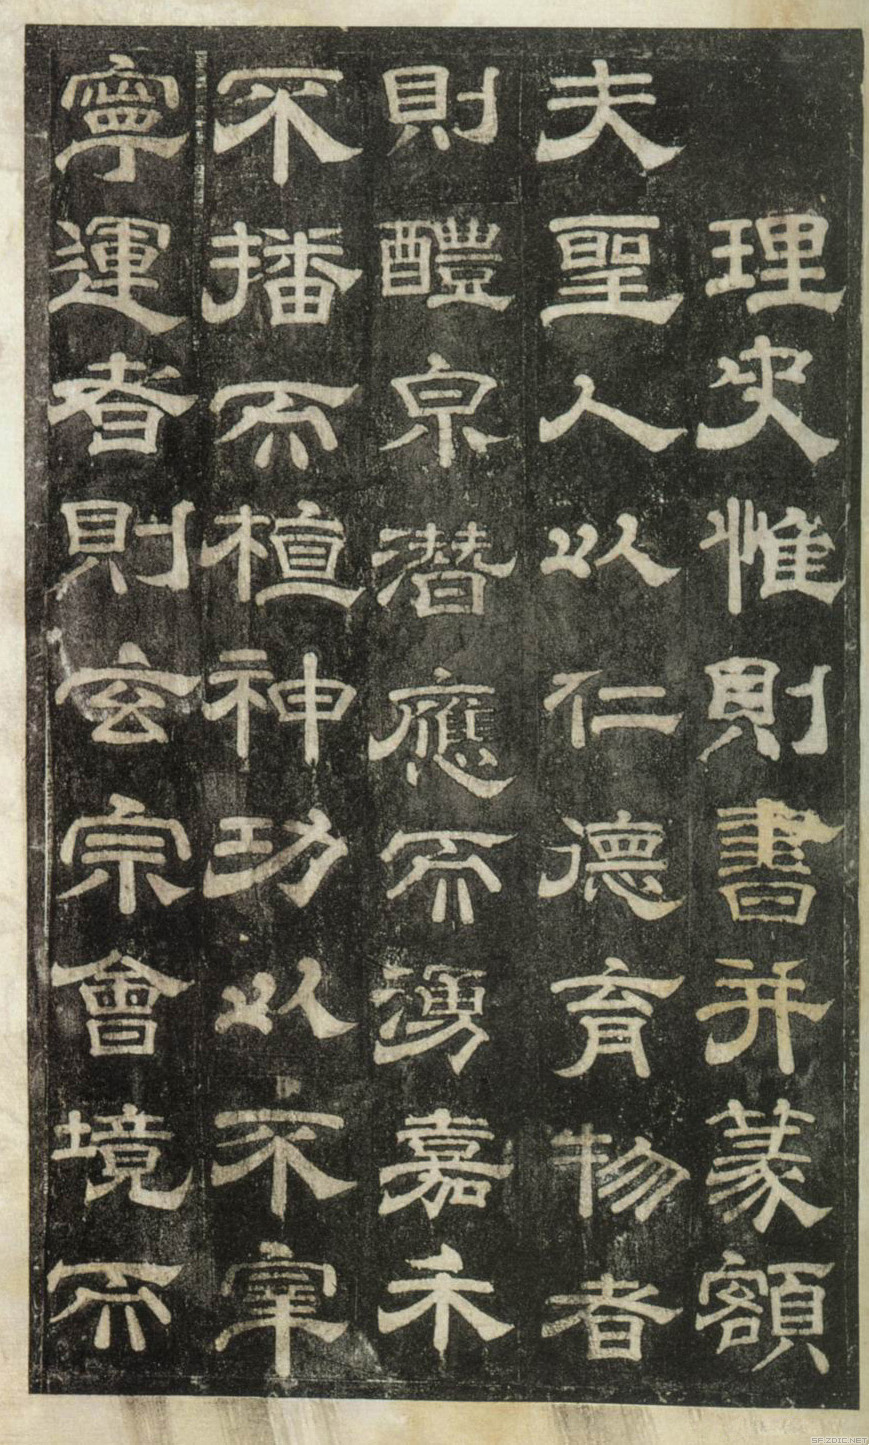 理史惟則書并篆額
夫聖人以仁德育物者
則醴泉潛應而湧嘉禾
不播而植神功以不宰
寧運者則玄宗會境而
SF.ZDIC.NET